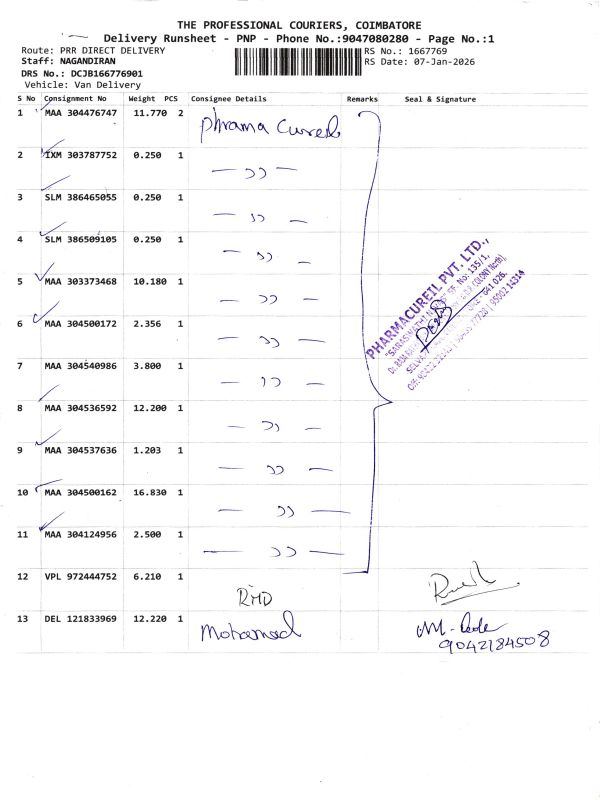 THE PROFESSIONAL COURIERS, COIMBATORE
Delivery Runsheet - PNP - Phone No.:9047080280 - Page No.:1
Route: PRR DIRECT DELIVERY
RS No.: 1667769
Staff: NAGANDIRAN
RS Date: 07-Jan-2026
DRS No.: DCJB166776901
Vehicle: Van Delivery
S No Consignment No Weight PCS Consignee Details Remarks Seal & Signature
1 MAA 304476747 11.770 2 Phrama Cureil
2 IXM 303787752 0.250 1 — ,, —
3 SLM 386465055 0.250 1 — ,, —
4 SLM 386509105 0.250 1 — ,, —
5 MAA 303373468 10.180 1 — ,, —
6 MAA 304500172 2.356 1 — ,, —
7 MAA 304540986 3.800 1 — ,, —
8 MAA 304536592 12.200 1 — ,, —
9 MAA 304537636 1.203 1 — ,, —
10 MAA 304500162 16.830 1 — ,, —
11 MAA 304124956 2.500 1 — ,, —
PHARMACUREIL PVT. LTD.,
12 VPL 972444752 6.210 1 RMD
13 DEL 121833969 12.220 1 Mohamad
9042184508